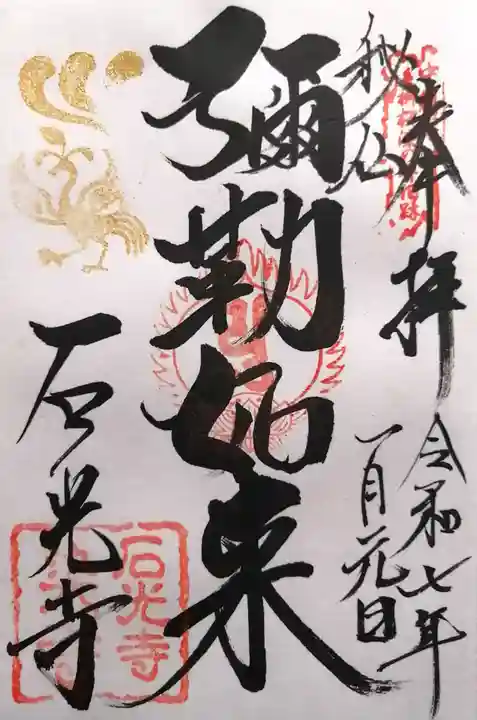 奉拝
秘仏
令和七年
一月元日
彌勒如来
石光寺
石光寺